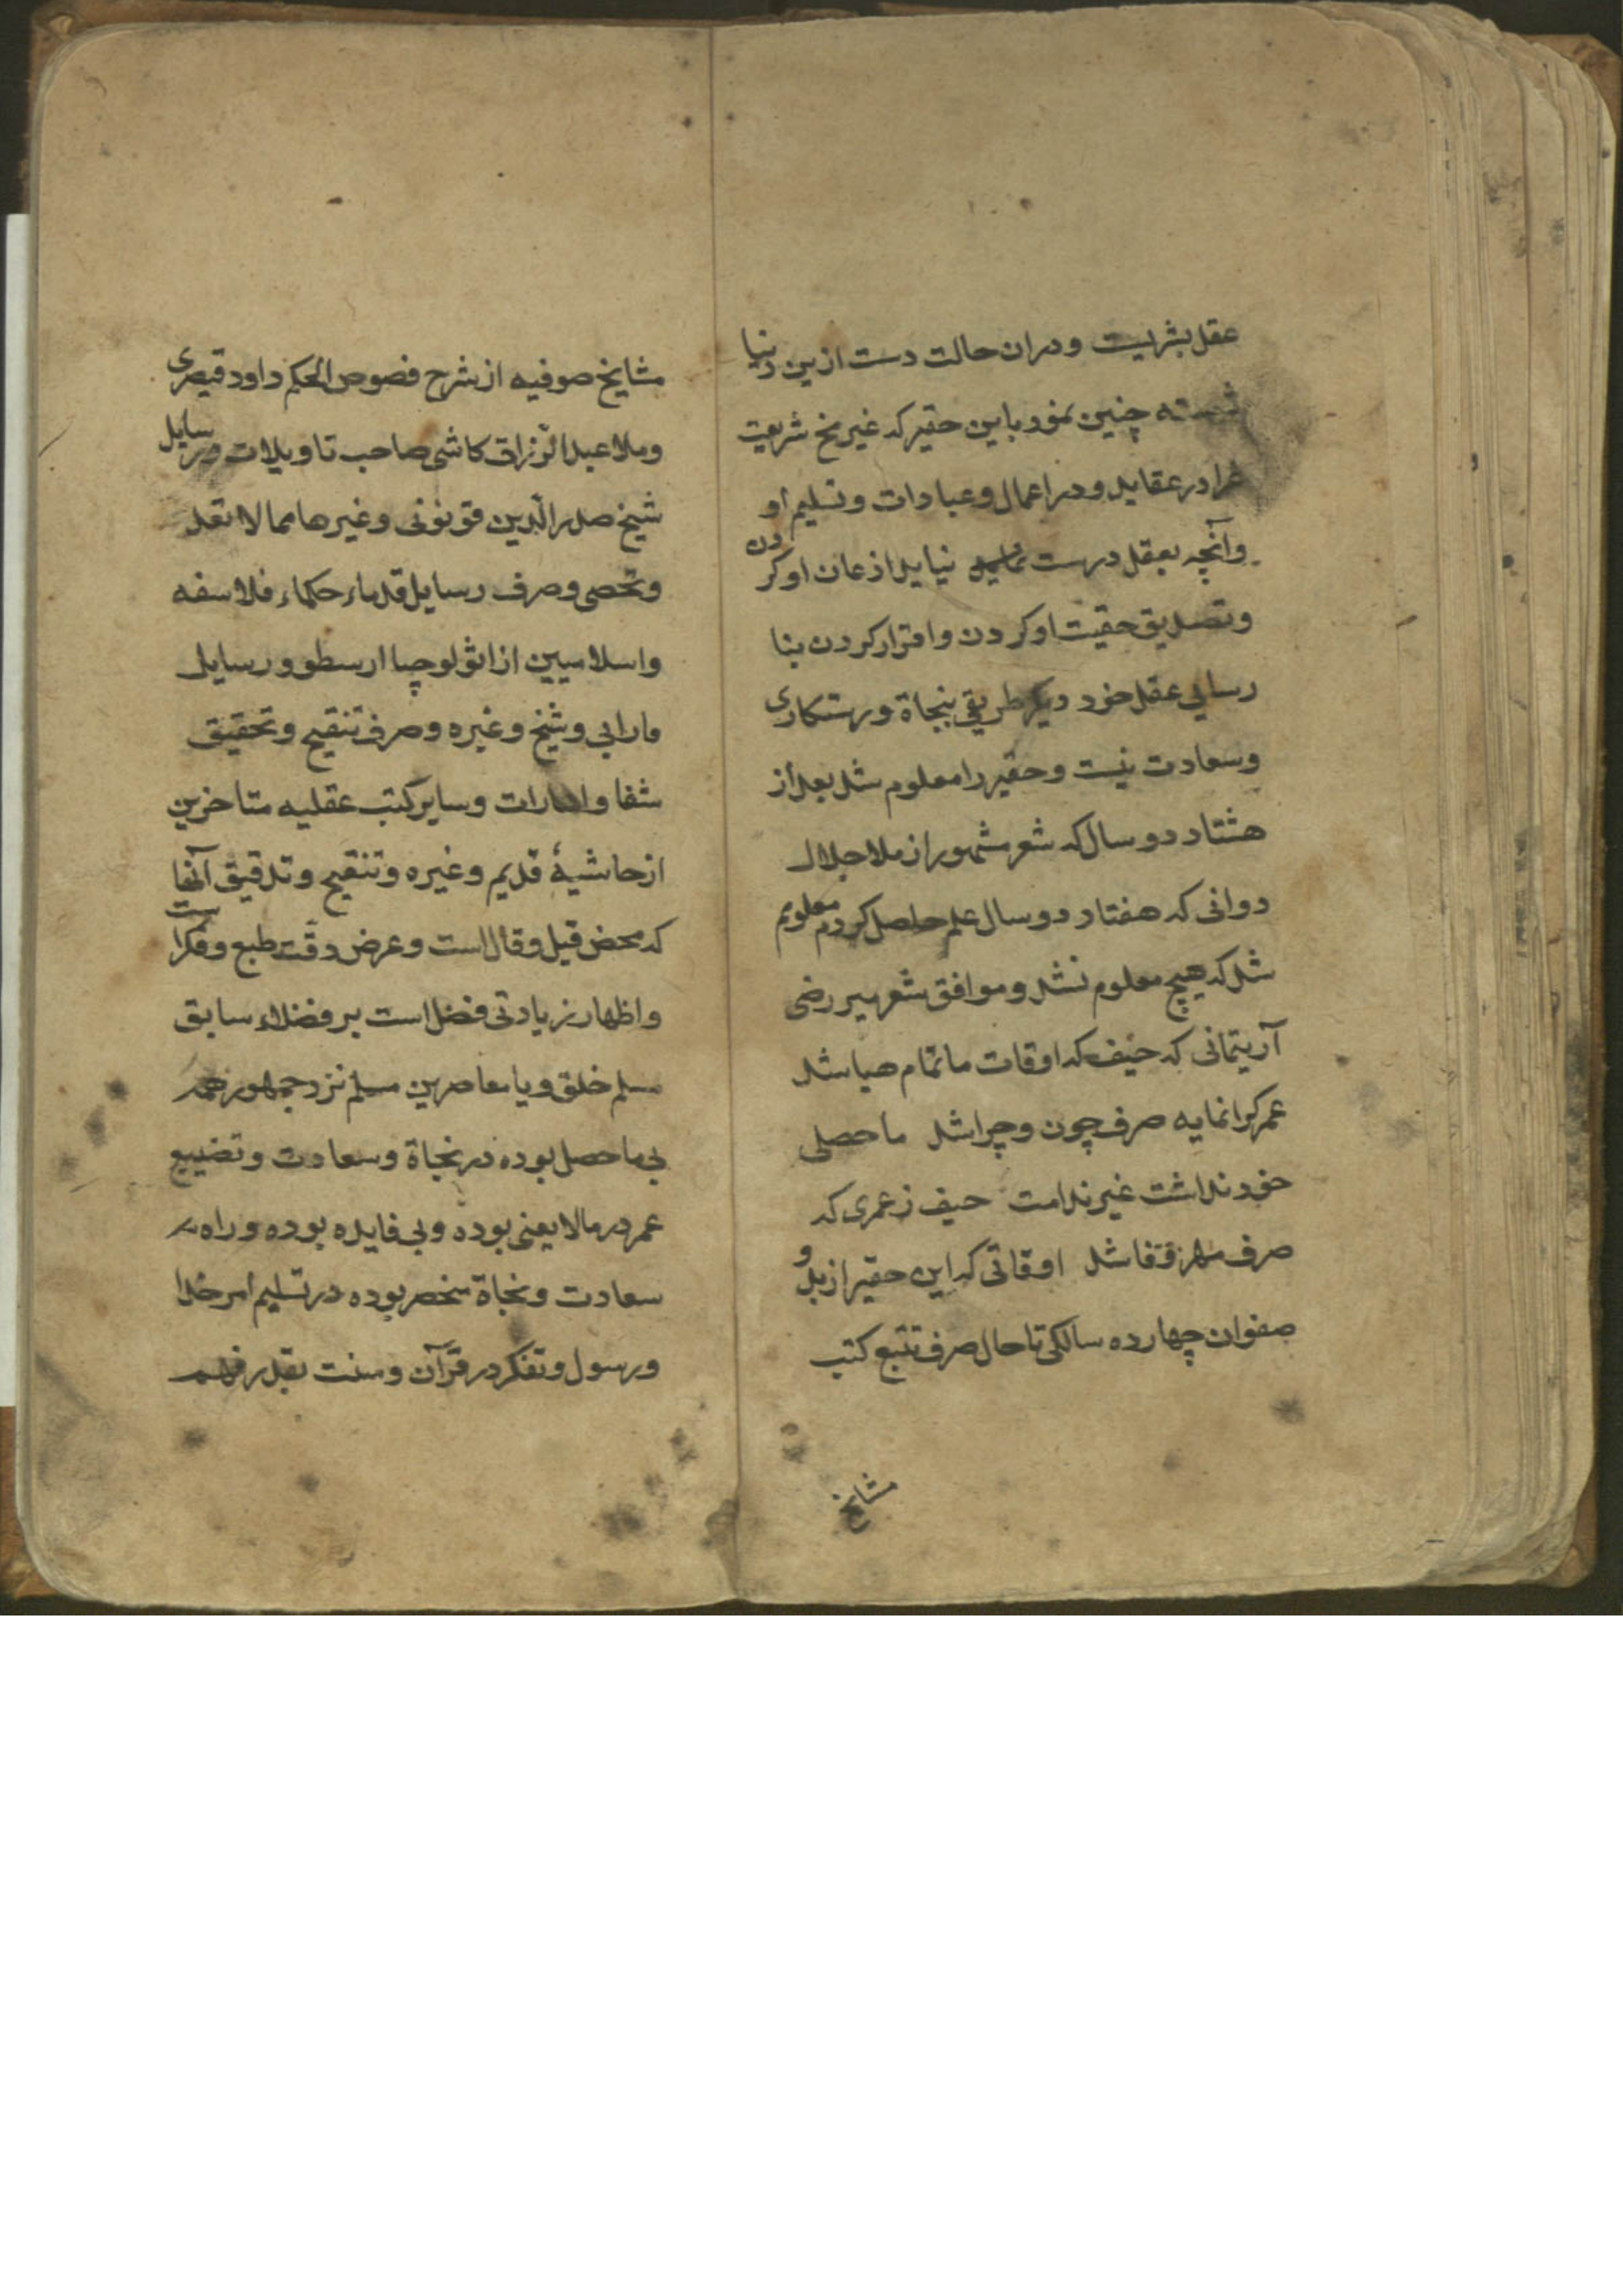 عقل بشریت ودران حالت دست ازین دنیا
شسته چنین نمود باین حقیر که غیر شریعت
غرا در عقاید ودر اعمال وعبادات وتسلیم او
وآنچه بعقل درست نیاید اذعان او کردن
وتصدیق حقیت او کردن واقرار کردن بنا
رسایی عقل خود دیگر طریق بنجاة ورستکاری
وسعادت نیست وحقیر را معلوم شد بعد از
هشتاد دو سال که شعر مشهور از ملا جلال
دوانی که هفتاد دو سال علم حاصل کردم معلوم
شد که هیچ معلوم نشد وموافق شعر میر رضی
آرتیمانی که حیف که اوقات ما تمام هبا شد
عمر گرانمایه صرف چون وچرا شد ماحصلی
خود نداشت غیر ندامت حیف ز عمری که
صرف شد اوقاتی که این حقیر از بدو
صفوان چهارده سالگی تا حال صرف تتبع کتب
مشایخ
مشایخ صوفیه از شرح فصوص الحکم داود قیصری
وملا عبد الرزاق کاشی صاحب تاویلات ورسایل
شیخ صدر الدین قونوی وغیرها مما لا تعد
وتحصی وصرف رسایل قدماء حکماء فلاسفه
واسلامیین از اثولوجیا ارسطو ورسایل
فارابی وشیخ وغیره وصرف تنقیح وتحقیق
شفا واشارات وسایر کتب عقلیه متاخرین
از حاشیهٔ قدیم وغیره وتنقیح وتدقیق آنها
که محض قیل وقال است وعرض دقت طبع وفکر است
واظهار زیادتی فضل است بر فضلاء سابق
مسلم خلق ویا معاصرین مسلم نزد جمهور همه
بی ماحصل بوده در نجاة وسعادت وتضییع
عمر در مالا یعنی بوده وبی فایده بوده وراه
سعادت ونجاة منحصر بوده در تسلیم امر خدا
ورسول وتفکر در قرآن وسنت بقدر فهم